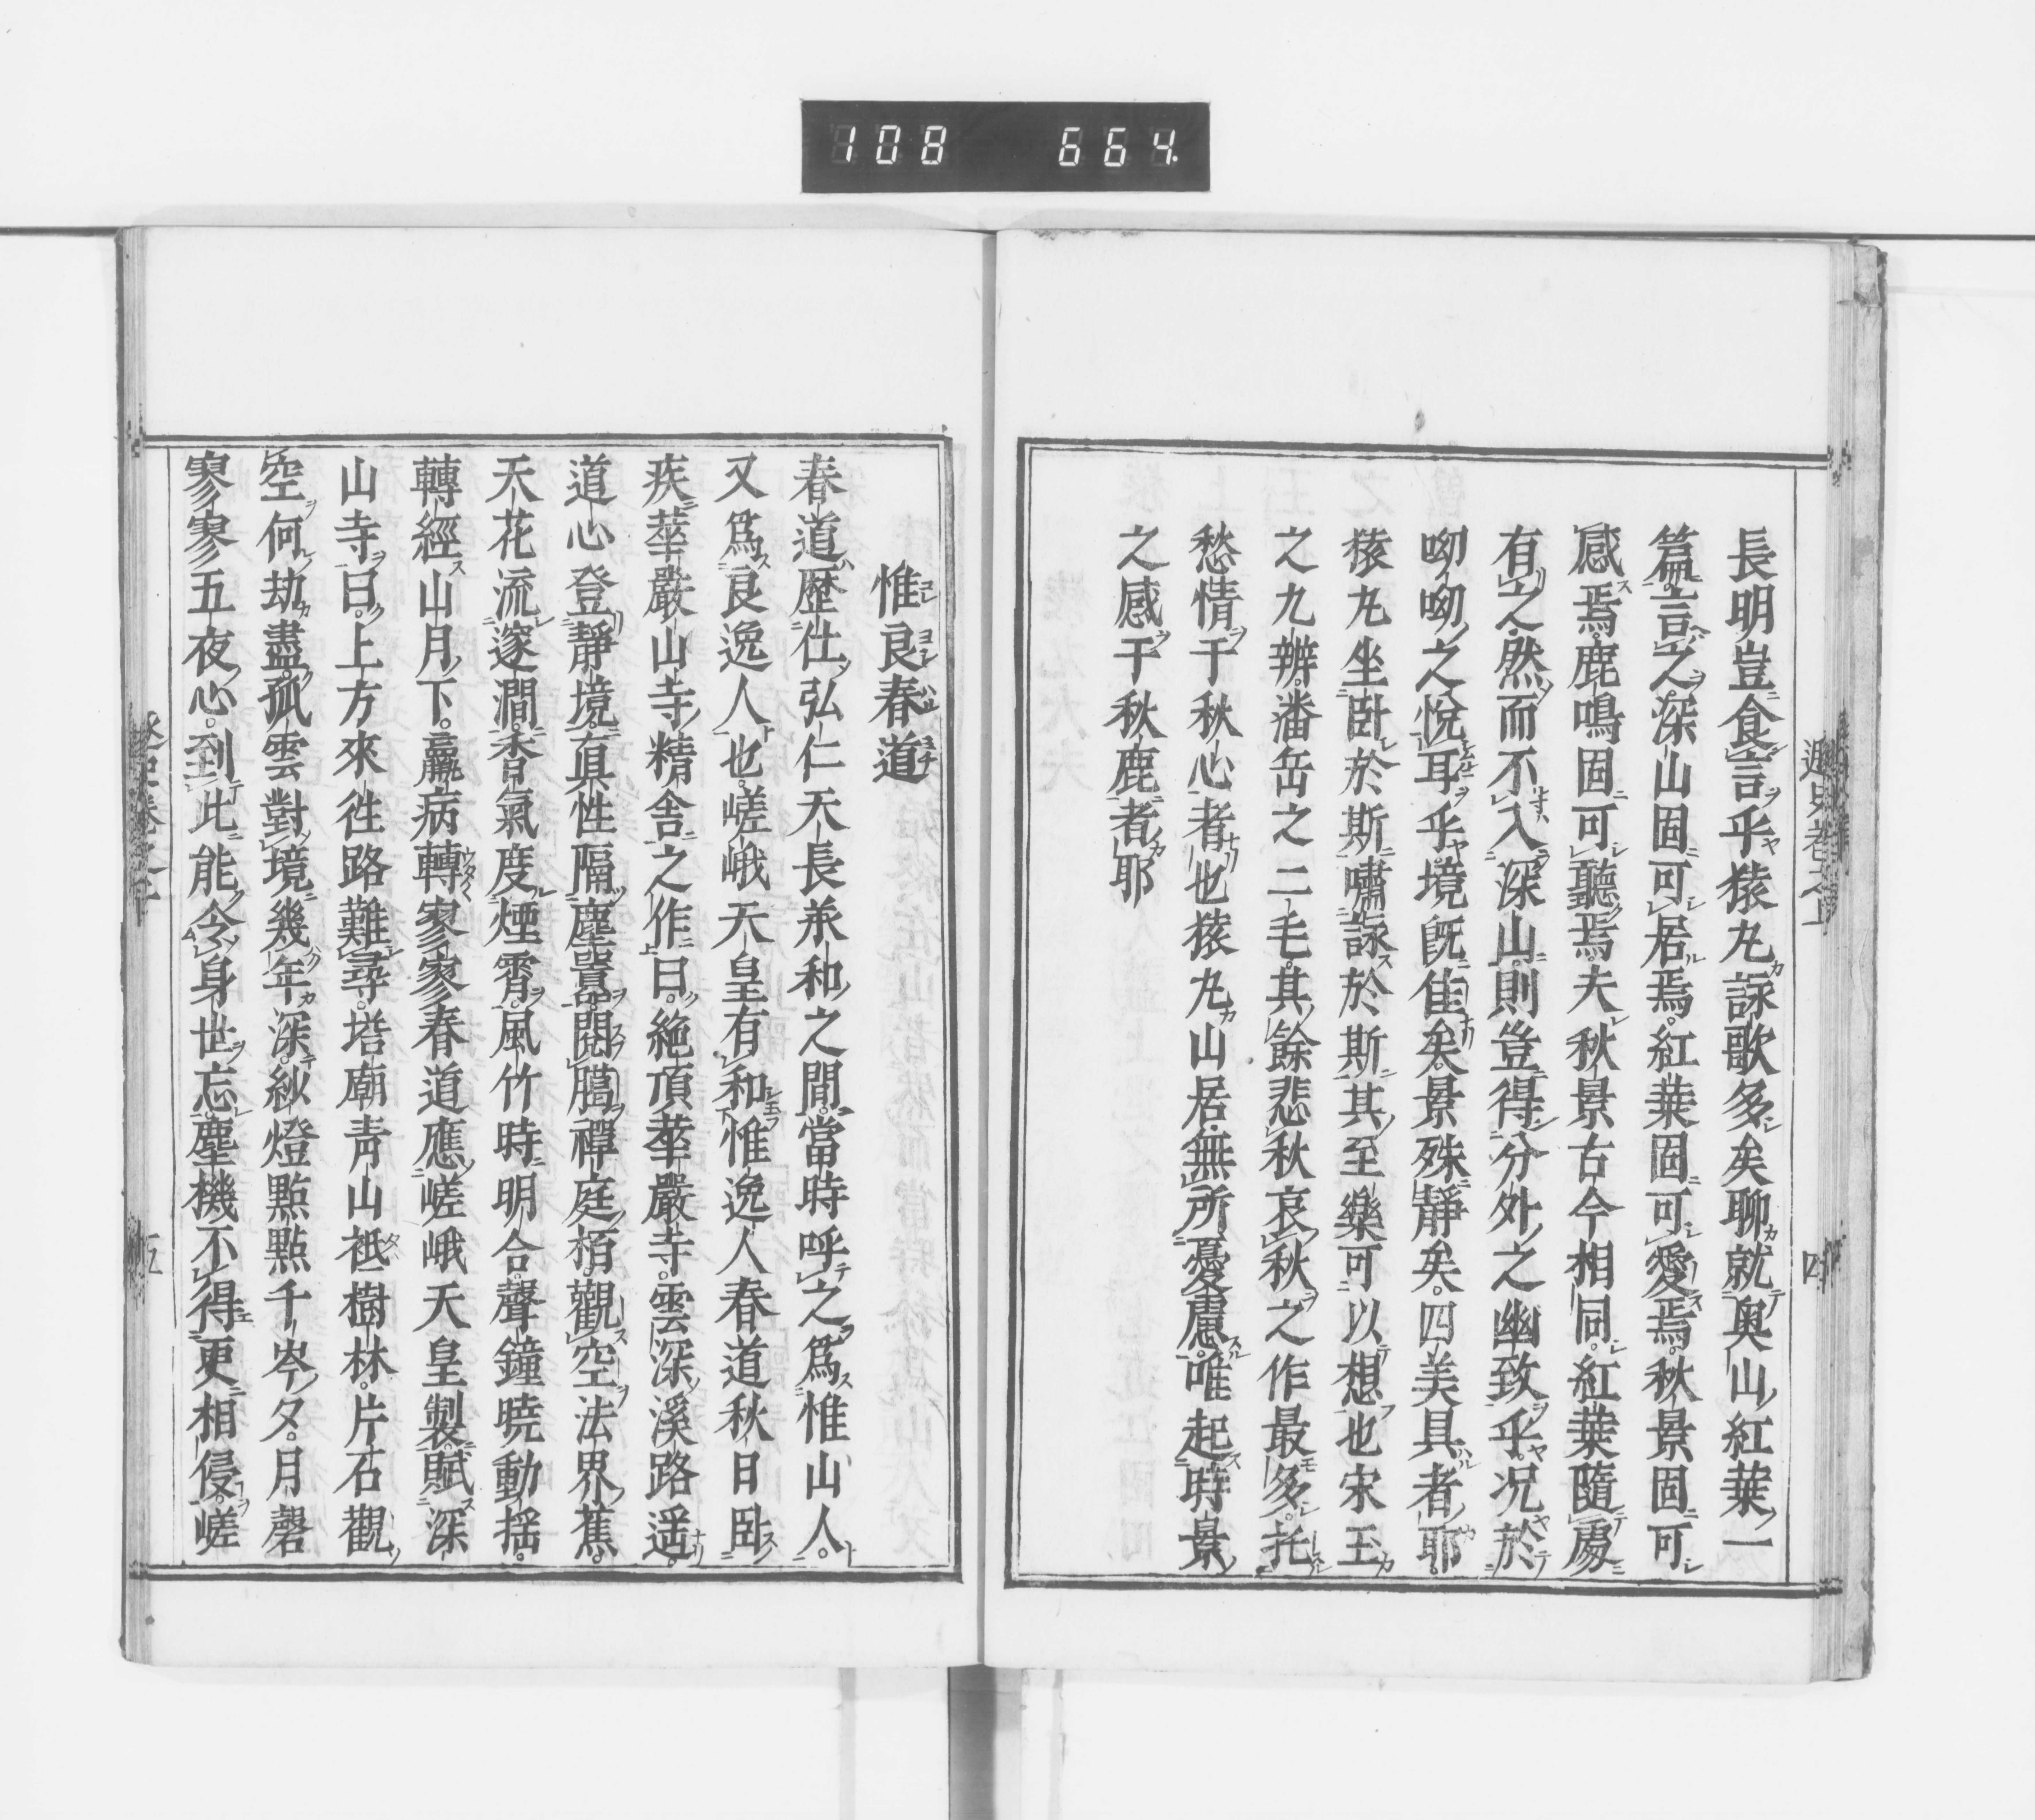 108 664.
長明豈食言乎猿丸詠歌多矣聊就奥山紅葉一
篇言之深山固可居焉。紅葉固可愛焉。秋景固可
感焉。鹿鳴固可聽焉。夫秋景古今相同。紅葉隨處
有之。然而不入深山。則豈得分外之幽致乎。况於
呦呦之悅耳乎。境既佳矣。景殊靜矣。四美具者耶。
猿丸坐卧於斯。嘯詠於斯。其至樂可以想也宋玉
之九辨。潘岳之二毛。其餘悲秋哀秋之作最多。托
愁情于秋心者也猿丸山居。無所憂慮。唯起時景
之感于秋鹿者耶
惟良春道
春道歷仕弘仁天長承和之間。當時呼之爲惟山人。
又爲良逸人也。嵯峨天皇有和惟逸人春道秋日卧
疾華嚴山寺精舍之作曰。絶頂華嚴寺。雲深溪路遥。
道心登靜境。眞性隔塵囂。閱臈禪庭栢。觀空法界蕉。
天花流邃澗。香氣度煙霄。風竹時明合。聲鐘曉動揺。
轉經山月下。羸病轉寥寥春道應嵯峨天皇製。賦深
山寺曰。上方來徃路難尋。塔廟青山祇樹林。片石觀
空何劫盡。孤雲對境幾年深。紗燈點點千岑夕。月磬
寥寥五夜心。到此能令身世忘。塵機不得更相侵。嵯
四
五